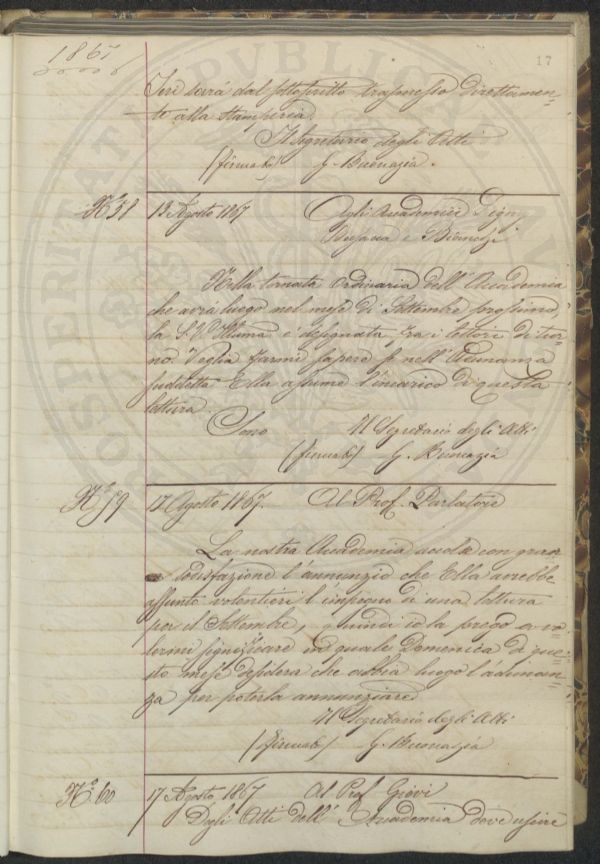 1867
17
Ieri sarà dal sottoscritto trasmesso direttamen=
te alla Stamperia.
Il Segretario degli Atti
(firmato) G. Buonazia.
N.° 58 13 Agosto 1867 Agli Accademici Digny
e Bianchi
Nella tornata ordinaria dell'Accademia
che avrà luogo nel mese di Settembre prossimo,
la S.V. Illuma. è designata fra i lettori di tur=
no. Voglia farmi sapere se nell'Adunanza
suddetta Ella assume l'incarico di questa
lettura.
Sono Il Segretario degli Atti
(firmato) G. Buonazia
N.° 59 17 Agosto 1867. Al Prof. Parlatore
La nostra Accademia con
sodisfazione l'annunzio che Ella avrebbe
assunto volentieri l'impegno di una lettura
per il Settembre, quindi io la prego a vo=
lermi significare in quale Domenica di que=
sto mese desidera che abbia luogo l'adunan=
za per poterla annunziare.
Il Segretario degli Atti
(firmato) G. Buonazia
N.° 60 17 Agosto 1867 Al Prof. Govi
Degli Atti dell'Accademia deve uscire
PROSPERITATI PUBLICAE AU